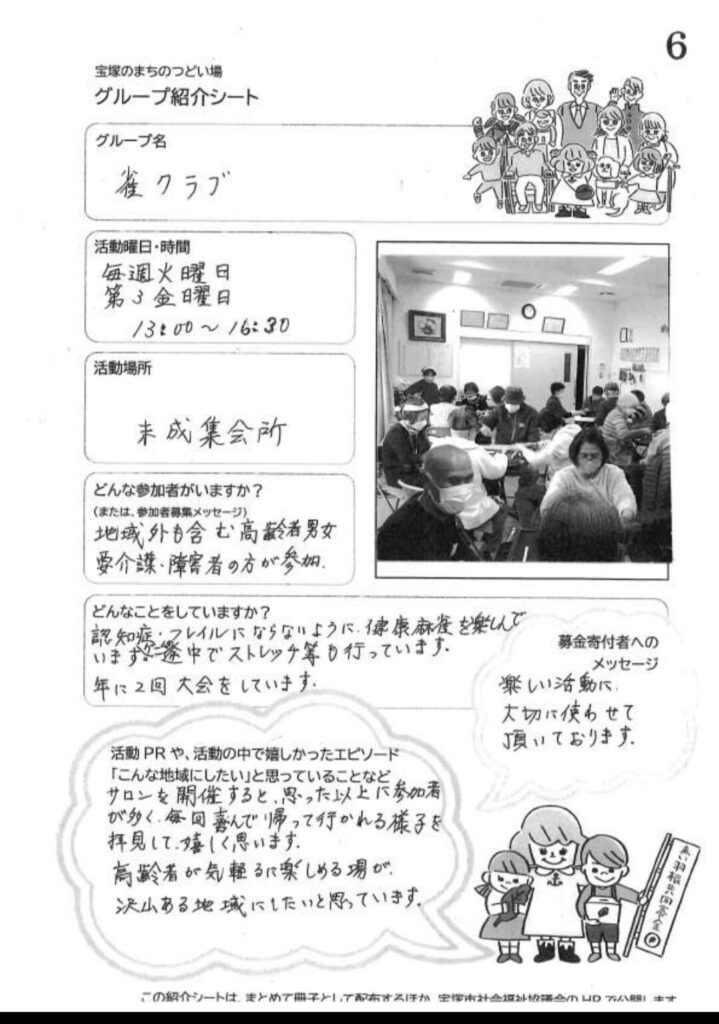 6
宝塚のまちのつどい場
グループ紹介シート
グループ名
雀クラブ
活動曜日・時間
毎週火曜日
第3金曜日
13:00〜16:30
活動場所
末成集会所
どんな参加者がいますか？
（または、参加者募集メッセージ）
地域外も含む高齢者男女
要介護・障害者の方が参加.
どんなことをしていますか？
認知症・フレイルにならないように.健康麻雀を楽しんで
います。途中でストレッチ等も行っています.
年に2回大会をしています.
募金寄付者への
メッセージ
楽しい活動に.
大切に使わせて
頂いております.
活動PRや、活動の中で嬉しかったエピソード
「こんな地域にしたい」と思っていることなど
サロンを開催すると、思った以上に参加者
が多く、毎回喜んで帰って行かれる様子を
拝見して、嬉しく思います.
高齢者が気軽るに楽しめる場が.
沢山ある地域にしたいと思っています.
赤い羽根共同募金
この紹介シートは、まとめて冊子として配布するほか、宝塚市社会福祉協議会のHPで公開します